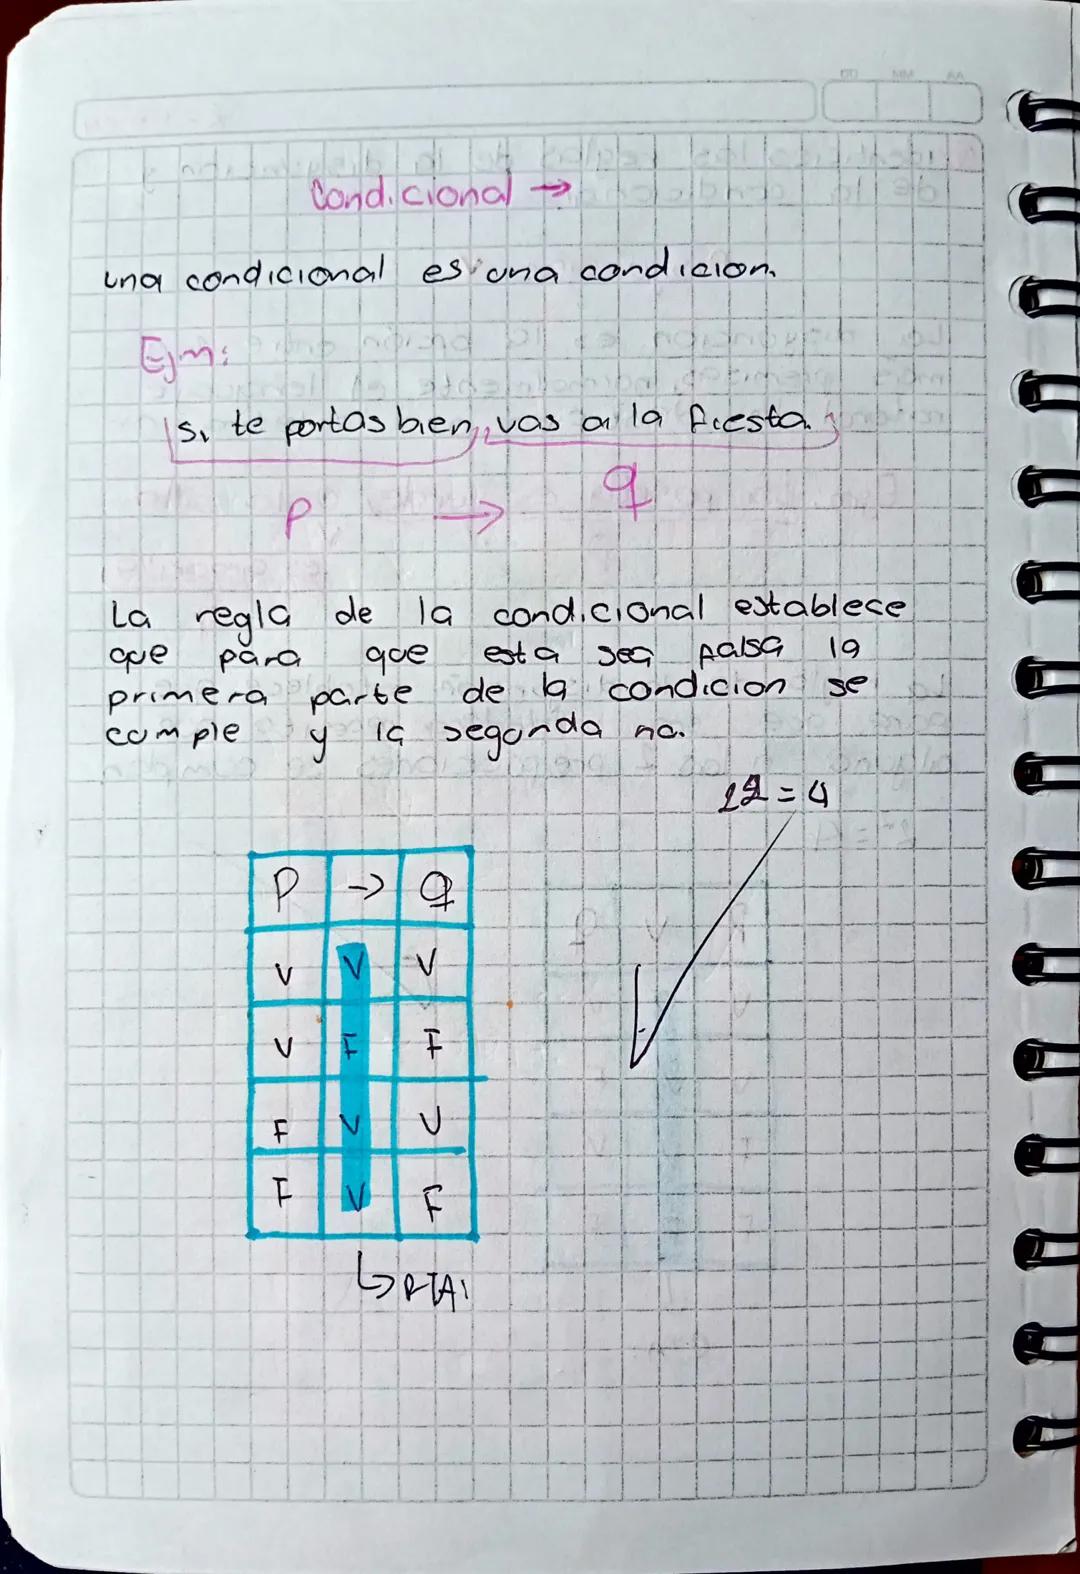 DD MM AA
Condicional →
una condicional es una condicion.
Ejm:
si te portas bien, vas a la fiesta.
P → q
La regla de la condicional establece
que para que esta sea falsa la
primera parte de la condicion se
cumple y la segunda no.
2² = 4
P → Q
V V V
V F F
F V V
F V F
↳ RTA